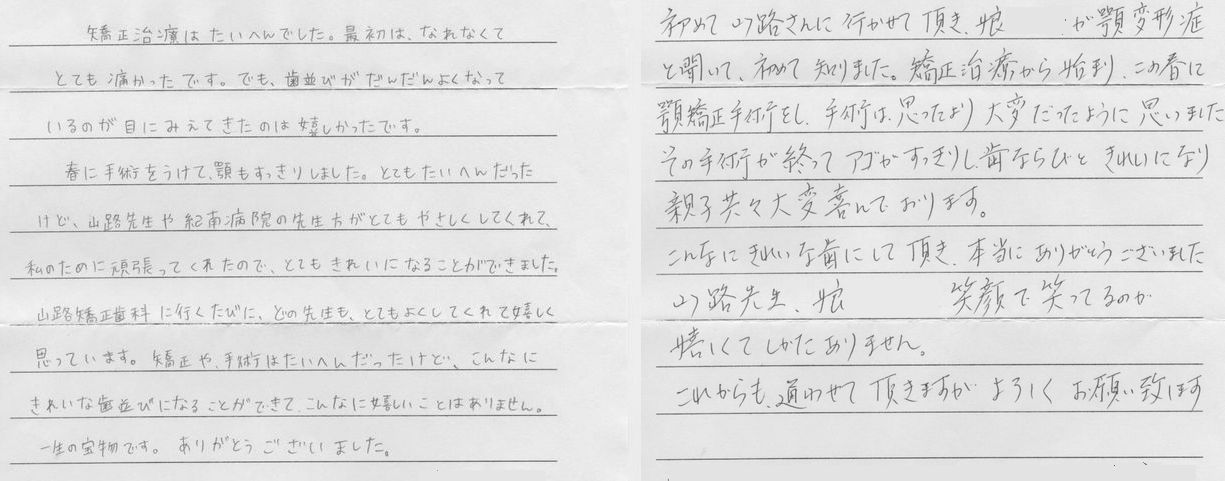 矯正治療はたいへんでした。最初は、なれなくて
とても痛かったです。でも、歯並びがだんだんよくなって
いるのが目にみえてきたのは嬉しかったです。
春に手術をうけて、顎もすっきりしました。とてもたいへんだった
けど、山路先生や紀南病院の先生方がとてもやさしくしてくれて、
私のために頑張ってくれたので、とてもきれいになることができました。
山路矯正歯科に行くたびに、どの先生も、とてもよくしてくれて嬉しく
思っています。矯正や、手術はたいへんだったけど、こんなに
きれいな歯並びになることができて、こんなに嬉しいことはありません。
一生の宝物です。ありがとうございました。
初めて山路さんに行かせて頂き、娘 が顎変形症
と聞いて、初めて知りました。矯正治療から始まり、この春に
顎矯正手術をし、手術は、思ったより大変だったように思いました
その手術が終ってアゴがすっきりし、歯ならびときれいになり
親子共々大変喜んでおります。
こんなにきれいな歯にして頂き、本当にありがとうございました
山路先生、娘 笑顔で笑ってるのが
嬉しくてしかたありません。
これからも、通わせて頂きますがよろしくお願い致します